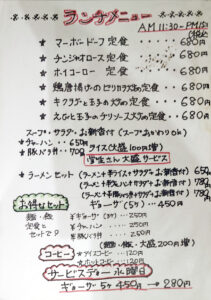 ランチメニュー
AM 11:30~PM
(税込)
★ マーボードーフ定食 680円
★ チンジャオロース定食 680円
★ ホイコーロー 定食 680円
★ 鶏唐揚げのピリカラ定食 680円
★ キクラゲと玉子の 定食 680円
★ えびと玉子のチリソース 定食 680円
スープ・サラダ・お新香付(スープおかわりok)
★チャーハン 650円
★豚バラ 700円
ライス大盛(100円増)
学生さん大盛サービス
★ラーメンセット
(ラーメン+半ライス+サラダ+お新香付)
(ラーメン+半チャーハン+サラダ+お新香付)
お得なセット
ギョーザ(5ケ)450円
麺・飯
定食と
セットで
ギョーザ(3ケ) 250円
250円
(麺・飯・大盛200円増)
コーヒー
★アイスコーヒー 120円
★ホットコーヒー 120円
サービスデー 水曜日
ギョーザ 5ケ 450円 → 280円